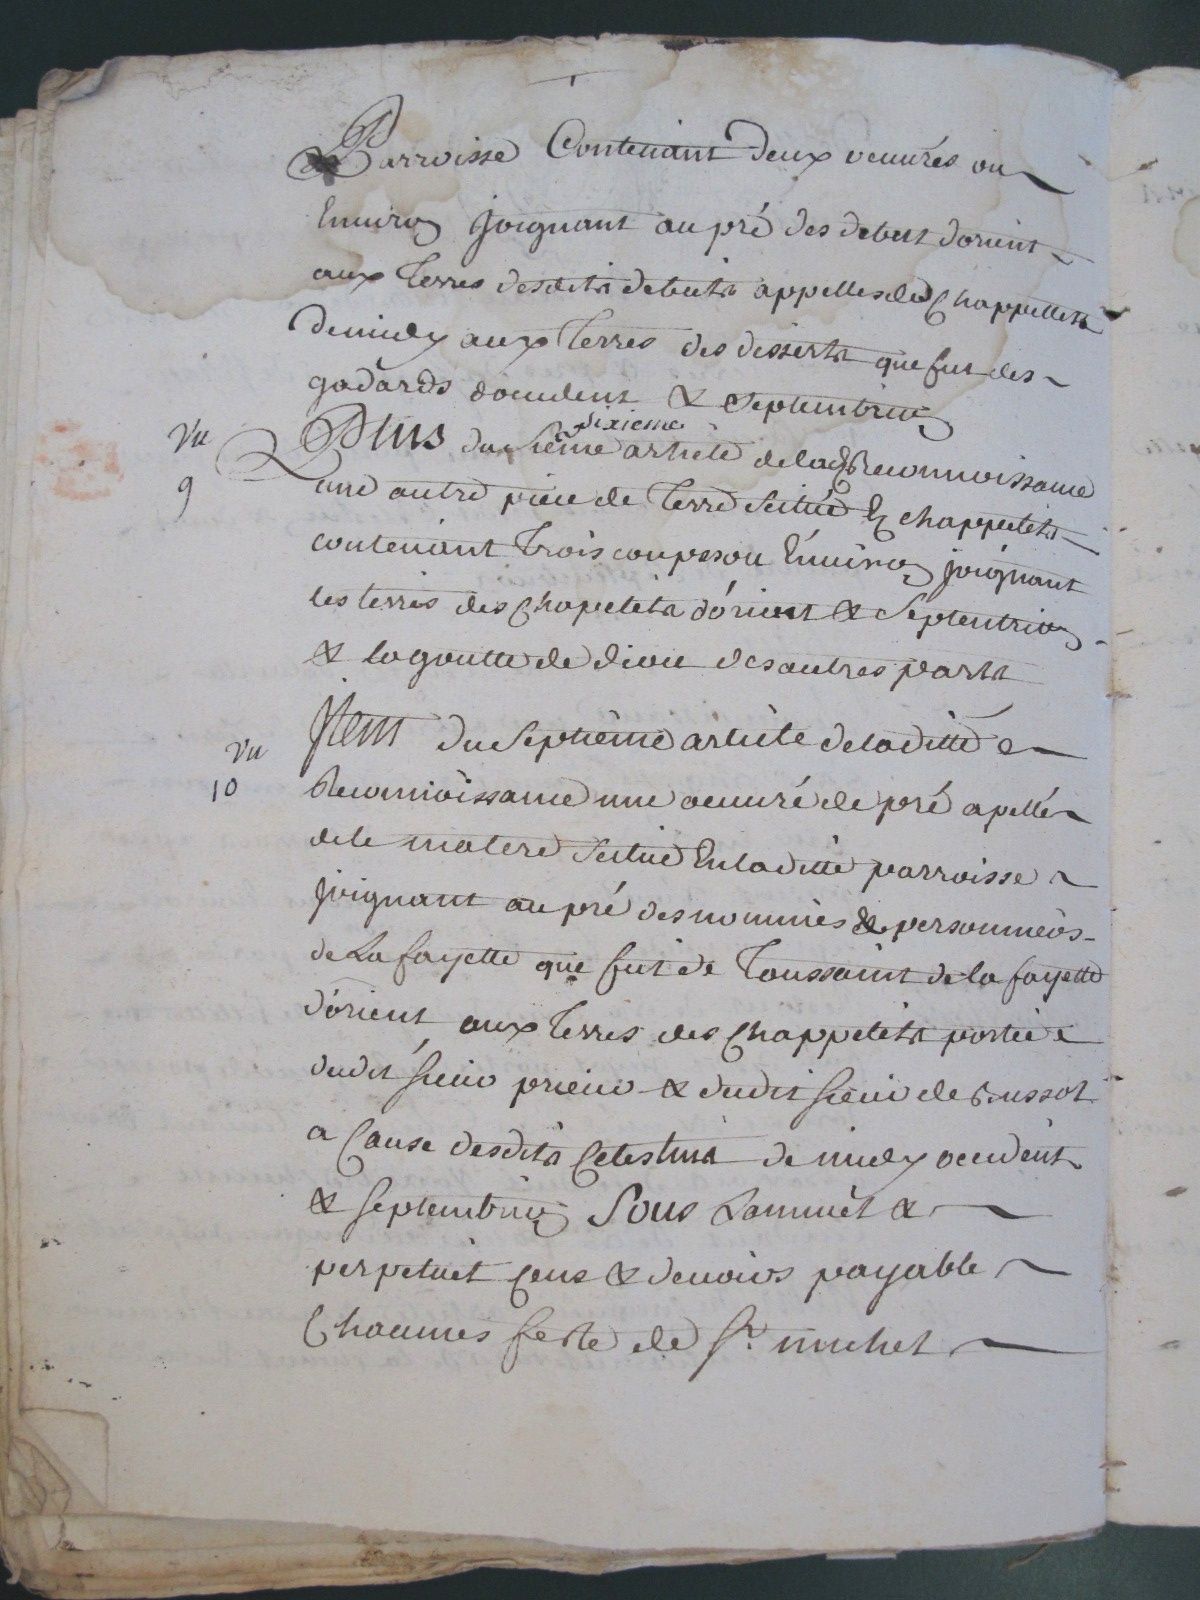 Parroisse Contenant deux oeuurés ou
Enuiron Joignant au pré des debut dorient
aux Terres desdits debuts appellés des Chappettes
de midy aux Terres des disserts que fut des
godards occident & Septentrion
Vu
9
Plus du sixieme article de lade Reconnoissance
une autre piece de Terre Scituée En chappetits
contenant Trois coupes ou Enuiron joignant
les terres des Chapetits d'orient & Septentrion
& la goutte de diou des autres parts
Vu
10
Jtem du Septieme article de laditte
Reconnoissance une oeuuré de pré apellé
de le matere Scitué En laditte parroisse
Joignant au pré des nommés & personniers
de Lafayette que fut de Toussaint de la fayette
d'orient aux Terres des Chappetits portée
dudit sieur prieur & dudit sieur de Bussot
a Cause desdits Celestins de midy occident
& Septentrion Sous Lannuel &
perpetuel Cens & deuoirs payable
Chacunes feste de St. michel